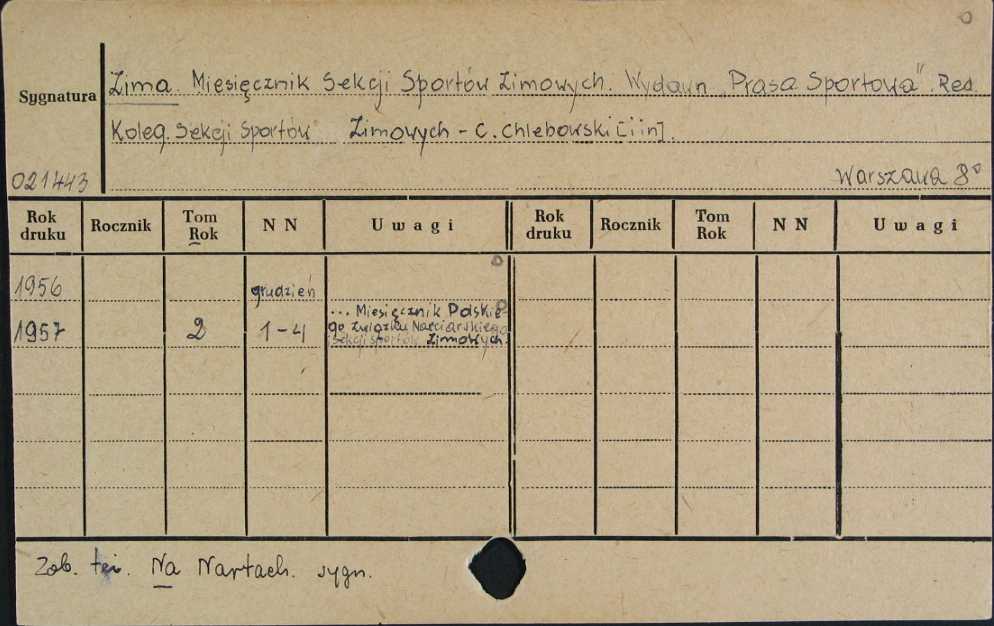 Zima. Miesięcznik Sekcji Sportów Zimowych. Wydawn. „Prasa Sportowa”. Red.
Sygnatura
Koleg. Sekcji Sportów Zimowych - C. Chlebowski [i in].
021443 Warszawa 8°
Rok druku Rocznik Tom Rok N N Uwagi Rok druku Rocznik Tom Rok N N Uwagi
1956 grudzień
1957 2 1-4 ... Miesięcznik Polskie-
go Związku Narciarskiego
Sekcji sportów zimowych.
Zob. też. Na Nartach. sygn.